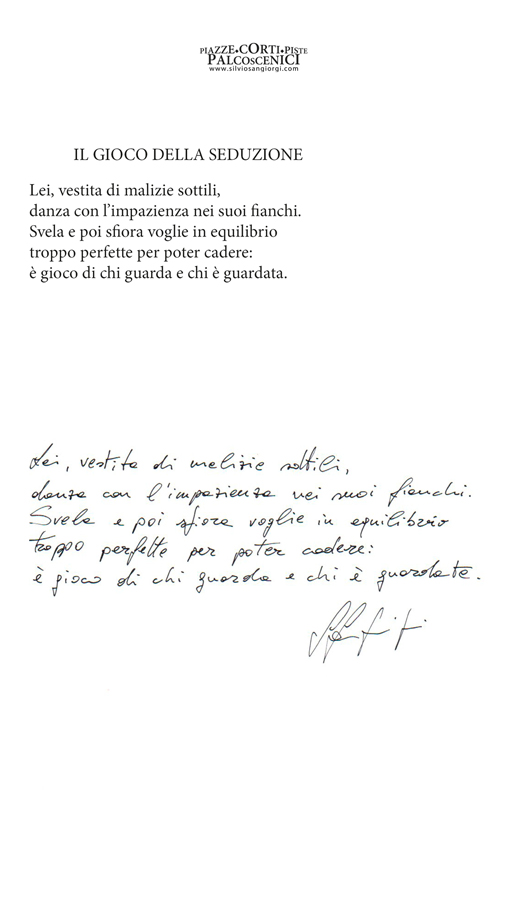 PIAZZE•CORTI•PISTE
PALCOSCENICI
www.silviosangiorgi.com
IL GIOCO DELLA SEDUZIONE
Lei, vestita di malizie sottili,
danza con l’impazienza nei suoi fianchi.
Svela e poi sfiora voglie in equilibrio
troppo perfette per poter cadere:
è gioco di chi guarda e chi è guardata.
Lei, vestita di malizie sottili,
danza con l'impazienza nei suoi fianchi.
Svela e poi sfiora voglie in equilibrio
troppo perfette per poter cadere:
è gioco di chi guarda e chi è guardata.